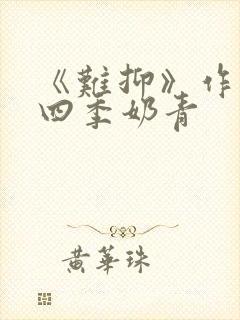 《難抑》作
四季奶青
黄華珠